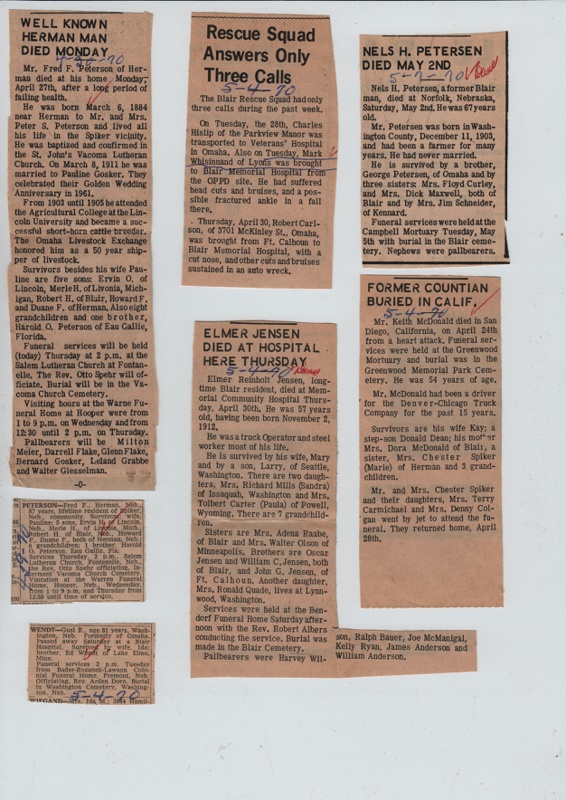 WELL KNOWN
HERMAN MAN
DIED MONDAY
Mr. Fred F. Peterson of Her-
man died at his home Monday,
April 27th, after a long period of
failing health.
He was born March 6, 1884
near Herman to Mr. and Mrs.
Peter S. Peterson and lived all
his life in the Spiker vicinity.
He was baptized and confirmed
in the St. John's Vacoma Lutheran
Church. On March 8, 1911 he was
married to Pauline Gosker. They
celebrated their Golden Wedding
Anniversary in 1961.
From 1903 until 1905 he attended
the Agricultural College at the Lin-
coln University and became a suc-
cessful short-horn cattle breeder.
The Omaha Livestock Exchange
honored him as a 50 year ship-
per of livestock.
Survivors besides his wife Pau-
line are five sons: Ervin O. of
Lincoln, Merle H. of Livonia, Mich-
igan, Robert H. of Blair, Howard F.
and Duane F. of Herman. Also eight
grandchildren and one brother,
Harold O. Peterson of Eau Gallie,
Florida.
Funeral services will be held
(today) Thursday at 2 p.m. at the
Salem Lutheran Church at Fontan-
elle. The Rev. Otto Spehr will of-
ficiate. Burial will be in the Va-
coma Church Cemetery.
Visiting hours at the Warne Fu-
neral Home at Hooper were from
1 to 9 p.m. on Wednesday and from
12:30 until 2 p.m. on Thursday.
Pallbearers will be Milton
Meier, Darrell Flake, Glenn Flake,
Bernard Gosker, Leland Grabbe
and Walter Giesselman.
-0-
PETERSON—Fred F., Herman, Neb.
87 years, lifetime resident of Spiker,
Neb., community. Survivors: wife,
Pauline; 5 sons, Ervin H. of Lincoln,
Neb., Merle H., of Livonia, Mich.,
Robert H. of Blair, Neb., Howard
F., Duane F., both of Herman, Neb.;
8 grandchildren; 1 brother, Harold
O. Peterson, Eau Gallie, Fla.
Services Thursday, 2 p.m., Salem
Lutheran Church, Fontenelle, Neb.,
the Rev. Otto Spehr officiating. In-
terment Vacoma Church Cemetery.
Visitation at the Warren Funeral
Home, Hooper, Neb., Wednesday,
from 1 to 9 p.m. and Thursday from
12:30 until time of service.
WENDT—Gust R., age 81 years, Wash-
ington, Neb. Formerly of Omaha.
Passed away Saturday at a Blair
Hospital. Survived by wife, Ida;
brother, Ed Wendt of Lake Elmo,
Minn.
Funeral services 2 p.m. Tuesday
from Bader-Rozanek-Lawson Colo-
nial Funeral Home, Fremont, Neb.
Officiating, Rev. Arden Dorn. Burial
in Washington Cemetery, Washing-
ton, Neb. 5-4-70
WIEGAND—Mrs. Ida M., 3844 Hamil-
Rescue Squad
Answers Only
Three Calls
5-4-70
The Blair Rescue Squad had only
three calls during the past week.
On Tuesday, the 28th, Charles
Hislip of the Parkview Manor was
transported to Veterans' Hospital
in Omaha. Also on Tuesday, Mark
Whisinnand of Lyons was brought
to Blair Memorial Hospital from
the OPPD site. He had suffered
head cuts and bruises, and a pos-
sible fractured ankle in a fall
there.
Thursday, April 30, Robert Carl-
son, of 3701 McKinley St., Omaha,
was brought from Ft. Calhoun to
Blair Memorial Hospital, with a
cut nose, and other cuts and bruises
sustained in an auto wreck.
ELMER JENSEN
DIED AT HOSPITAL
HERE THURSDAY
5-4-70
Elmer Reinholt Jensen, long-
time Blair resident, died at Mem-
orial Community Hospital Thurs-
day, April 30th. He was 57 years
old, having been born November 2,
1912.
He was a truck Operator and steel
worker most of his life.
He is survived by his wife, Mary
and by a son, Larry, of Seattle,
Washington. There are two daugh-
ters, Mrs. Richard Mills (Sandra)
of Issaquah, Washington and Mrs.
Tolbert Carter (Paula) of Powell,
Wyoming. There are 7 grandchild-
ren.
Sisters are Mrs. Adena Raabe,
of Blair and Mrs. Walter Olson of
Minneapolis. Brothers are Oscar
Jensen and William C. Jensen, both
of Blair, and John G. Jensen, of
Ft. Calhoun. Another daughter,
Mrs. Ronald Quade, lives at Lynn-
wood, Washington.
Services were held at the Ben-
dorf Funeral Home Saturday after-
noon with the Rev. Robert Albers
conducting the service. Burial was
made in the Blair Cemetery.
Pallbearers were Harvey Wil-
son, Ralph Bauer, Joe McManigal,
Kelly Ryan, James Anderson and
William Anderson.
NELS H. PETERSEN
DIED MAY 2ND
Nels H. Petersen, a former Blair
man, died at Norfolk, Nebraska,
Saturday, May 2nd. He was 67 years
old.
Mr. Petersen was born in Wash-
ington County, December 11, 1903,
and had been a farmer for many
years. He had never married.
He is survived by a brother,
George Petersen, of Omaha and by
three sisters: Mrs. Floyd Curley,
and Mrs. Dick Maxwell, both of
Blair and by Mrs. Jim Schneider,
of Kennard.
Funeral services were held at the
Campbell Mortuary Tuesday, May
5th with burial in the Blair ceme-
tery. Nephews were pallbearers.
FORMER COUNTIAN
BURIED IN CALIF.
5-4-70
Mr. Keith McDonald died in San
Diego, California, on April 24th
from a heart attack. Funeral ser-
vices were held at the Greenwood
Mortuary and burial was in the
Greenwood Memorial Park Cem-
etery. He was 54 years of age.
Mr. McDonald had been a driver
for the Denver-Chicago Truck
Company for the past 15 years.
Survivors are his wife Kay; a
step-son Donald Dean; his mother
Mrs. Dora McDonald of Blair, a
sister, Mrs. Chester Spiker
(Marie) of Herman and 3 grand-
children.
Mr. and Mrs. Chester Spiker
and their daughters, Mrs. Terry
Carmichael and Mrs. Denny Col-
gan went by jet to attend the fu-
neral. They returned home, April
28th.